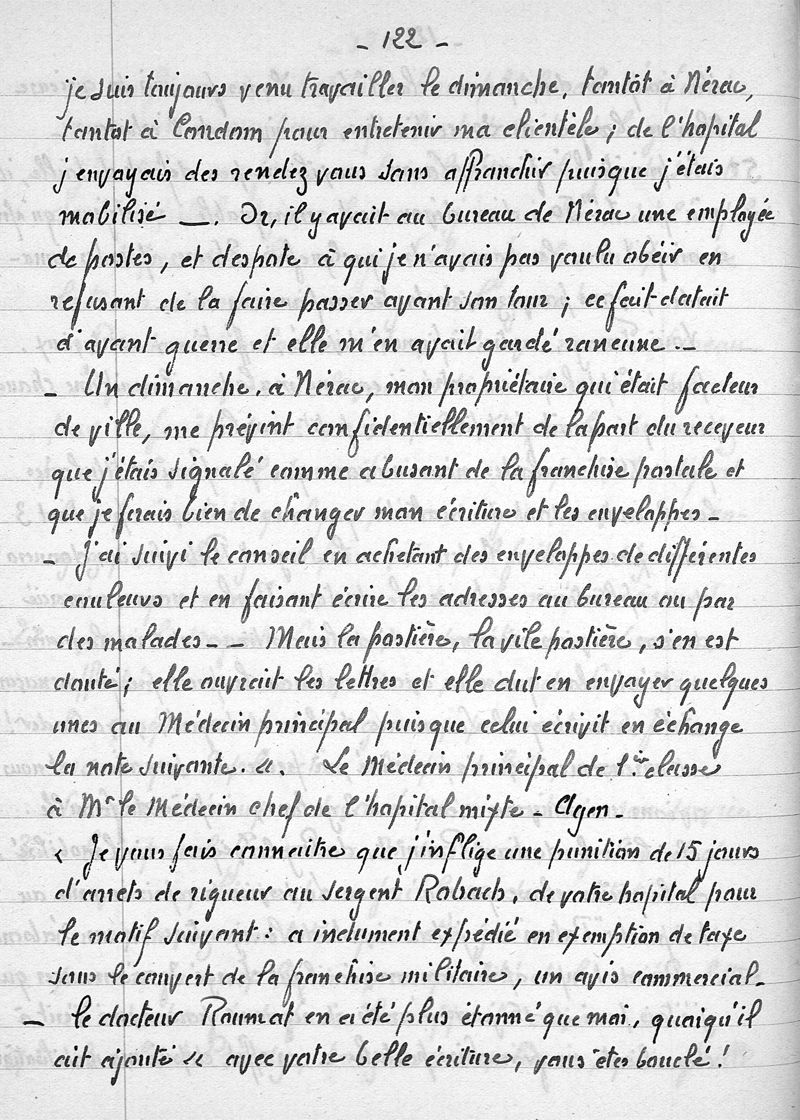 - 122 -
je suis toujours venu travailler le dimanche, tantôt à Nérac,
tantot à Condom pour entretenir ma clientèle ; de l'hopital
j'envoyais des rendez vous sans affranchir puisque j'étais
mobilisé —. Or, il y avait au bureau de Nérac une employée
de postes, et despote à qui je n'avais pas voulu obéir en
refusant de la faire passer avant son tour ; ce fait datait
d'avant guerre et elle m'en avait gardé rancune. -
- Un dimanche, à Nérac, mon propriétaire qui était facteur
de ville, me prévint confidentiellement de la part du receveur
que j'étais signalé comme abusant de la franchise postale et
que je ferais bien de changer mon écriture et les enveloppes -
- J'ai suivi le conseil en achetant des enveloppes de différentes
couleurs et en faisant écrire les adresses au bureau ou par
des malades - - Mais la postière, la vile postière, s'en est
douté ; elle ouvrait les lettres et elle dut en envoyer quelques
unes au Médecin principal puisque celui écrivit en échange
la note suivante. «. Le Médecin principal de 1.ère classe
à Mr le Médecin chef de l'hopital mixte - Agen -
« Je vous fais connaitre que j'inflige une punition de 15 jours
d'arrets de rigueur au sergent Robach, de votre hopital pour
le motif suivant : a indument expédié en exemption de taxe
sous le couvert de la franchise militaire, un avis commercial -
- le docteur Roumat en a été plus étonné que moi, quoiqu'il
ait ajouté « avec votre belle écriture, vous êtes bouclé !